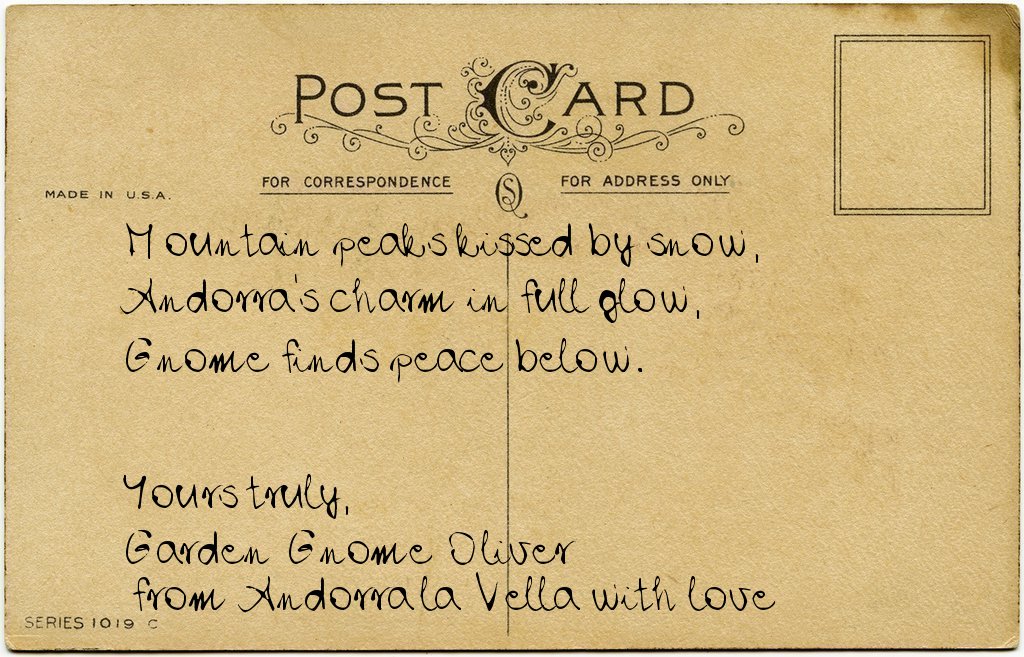 POST CARD
FOR CORRESPONDENCE
FOR ADDRESS ONLY
MADE IN U.S.A.
Mountain peaks kissed by snow,
Andorra's charm in full glow,
Gnome finds peace below.
Yours truly,
Garden Gnome Oliver
from Andorra la Vella with love
SERIES 1019 C